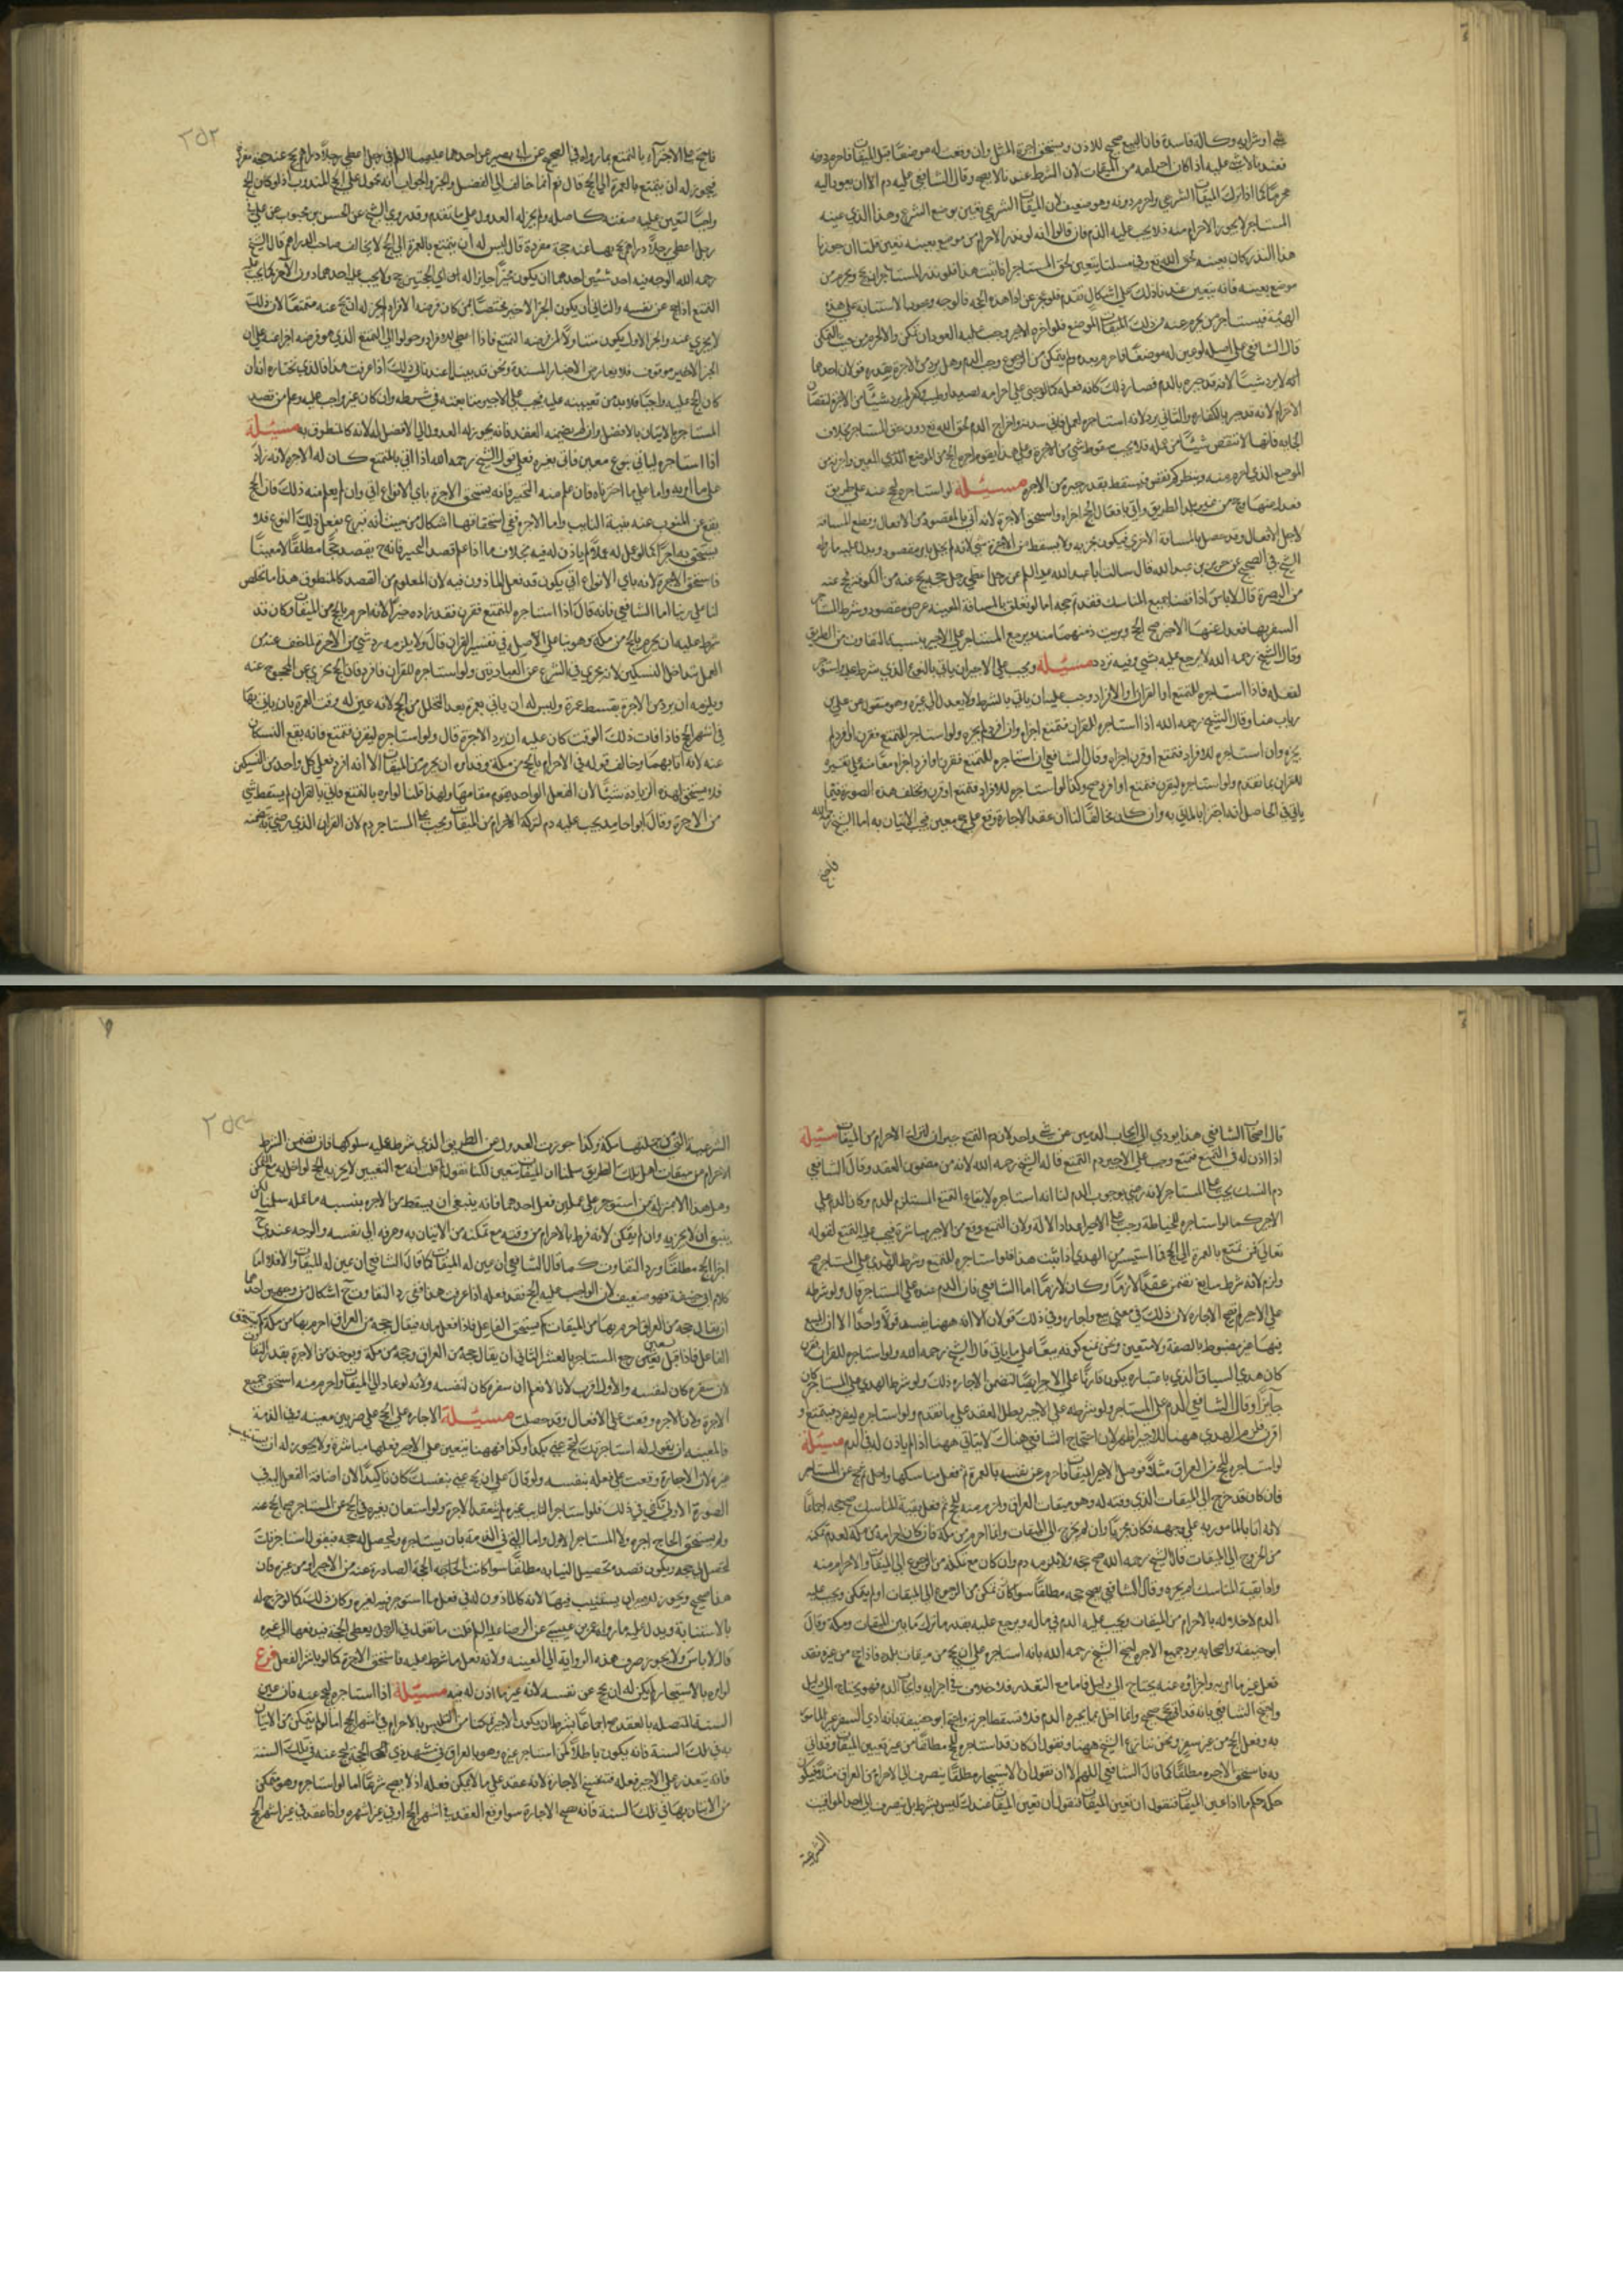 في او شرايه وكالة فاسدة فان البيع صحيح للاذن ويستحق اجرة المثل وان وقعت له موضعا قبل الميقات فاحرم دونه
فعندنا لا شيء عليه اذا كان احرامه من الميقات لان الشرط عندنا لا يصح وقال الشافعي عليه دم الا ان يعود اليه
محرما كما اذا ترك الميقات الشرعي واحرم دونه وهو ضعيف لان الميقات الشرعي تعين بوضع الشرع وهذا الذي عينه
المستاجر لا يجوز الاحرام منه فلا يجب عليه الدم فان قالوا انه لو نذر الاحرام من موضع بعينه تعين قلنا ان جوزنا
هذا النذر كان بعينه لحق الله تع وفي مسئلتنا يتعين لحق المستاجر اذا ثبت هذا فلو نذر المستاجر ان يحج ويحرم من
موضع بعينه فانه يتعين عندنا ذلك على اشكال تقدم فلو عجز عن اداء هذه الحجة فالوجه وجوب الاستنابة على هذه
الهيئة فيستاجر من يحرم عنه من ذلك الميقات الموضع فلو اخره الاجير وجب عليه العود ان تمكن والا احرم من حيث التمكن
قال الشافعي على اصله لو عين له موضعا فاحرم بعده ولم يتمكن من الرجوع وجب الدم وهل يرد من الاجرة بقدره قولان احدهما
انه لا يرد شيئا لانه قد جبره بالدم فصار ذلك كانه فعله كما لو جنى على احرامه لصيد او طيب
الاحرام لانه قد جبر بالكفارة والثاني يرد لانه استاجره لعمل فاتى ببعضه واخراج الدم لحق الله تع دون حق المستاجر بخلاف
الجنايه فانها لا تنقص شيئا من عمله فلا يجب سقوط شيء من الاجرة وعلى هذا يقوم اجرة الحج من الموضع الذي المعين واجرته من
الموضع الذي احرم منه وينظر كم نقص فيسقط بقدر جبره من الاجرة مسئلة لو استاجره ليحج عنه على طريق
فعدل عنها وحج من غير تلك الطريق واتى بافعال الحج اجزاه واستحق الاجرة لانه اتى بالمقصود من الافعال وقطع المسافة
لاجل الافعال وقد حصل بالمسافة الاخرى فيكون مجزيه ولا يسقط من الاجرة شيء لانه لم يخل بامر مقصود ويدل عليه ما رواه
الشيخ في الصحيح عن حريز بن عبد الله قال سالت ابا عبد الله عليه السلام عن رجل اعطى رجلا حجة يحج عنه من الكوفة فحج عنه
من البصرة قال لا باس اذا قضى جميع المناسك فقد تم حجه اما لو تعلق بالمسافة المعينة غرض مقصود وشرط المستاجر
السفر بها فعدل عنها الاجير صح الحج وبريت ذمتهما منه ويرجع المستاجر على الاجير بنسبة التفاوت من الطريق
وقال الشيخ رحمه الله لا يرجع عليه بشيء وفيه تردد مسئلة ويجب على الاجير ان ياتي بالنوع الذي شرط عليه واستوجر
لفعله فاذا استاجره للتمتع او القران او الافراد وجب عليه ان ياتي بالشرط ولا يعدل الى غيره وهو منقول عن علي بن
رياب منا وقال الشيخ رحمه الله اذا استاجره للقران فتمتع اجزاه وان افرد لم يجزه ولو استاجره للتمتع فقرن او افرد لم
يجزه وان استاجره للافراد فتمتع او قرن اجزاه وقال الشافعي ان استاجره للتمتع فقرن او افرد اجزاه
للقران بما تقدم ولو استاجره ليقرن فتمتع او افرد صح وكذا لو استاجره للافراد فتمتع او قرن وتختلف هذه الصورة فيما
ياتي في الحاصل انه اجتزا بالماتي به وان كان مخالفا لنا ان عقد الاجارة وقع على نوع معين فيجب الاتيان به اما الشيخ رحمه الله
فاحتج
٢٥٢
فاحتج على الاجزاء بالتمتع بما رواه في الصحيح عن ابي بصير عن احدهما عليهما السلام في رجل اعطى رجلا دراهم يحج عنه حجة مفردة
فيجوز له ان يتمتع بالعمرة الى الحج قال نعم انما خالف الى الفضل والخير والجواب انه محمول على الحج المندوب اذ لو كان الحج
واجبا لتعين عليه صفته كاصله ولم يجز له العدول على ما تقدم وقد روى الشيخ عن الحسن بن محبوب عن علي في
رجل اعطى رجلا دراهم يحج بها عنه حجة مفردة قال ليس له ان يتمتع بالعمرة الى الحج لا يخالف صاحب الدراهم قال الشيخ
رحمه الله الوجه فيه احد شيئين احدهما ان يكون مخيرا جايزا له اي الحجتين حج ولا يجب عليه احدهما دون الاخر كما يجب على
المتمتع اذا حج عن نفسه والثاني ان يكون الخبر الاخير مختصا بمن كان فرضه الافراد لم يجز له ان يحج عنه متمتعا لان ذلك
لا يجزي عنه والخبر الاول يكون متناولا لمن فرضه التمتع فاذا اعطى الافراد وحولوا الى التمتع الذي هو فرضه اجزا عنه على ان
الخبر الاخير موقوف فلا يعارض الاخبار المسندة ونحن قد بينا ما عندنا في ذلك اذا عرفت هذا فالذي نختاره انه ان
كان الحج عليه واجبا فلا بد من تعيينه عليه يجب على الاجير متابعته في شرطه وان كان غير واجب عليه وعلم من قصد
المستاجر الاتيان بالافضل وان لم يضمنه العقد فانه يجوز له العدول الى الافضل له لانه كالمنطوق به مسئلة
اذا استاجره لياتي بنوع معين فاتى بغيره فعلى قول الشيخ رحمه الله اذا اتى بالتمتع كان له الاجرة لانه زاد
على ما امر به واما على ما اخترناه فان علم منه التخيير فانه يستحق الاجرة باي الانواع اتى وان لم يعلم منه ذلك فان الحج
يقع عن المنوب عنه بنية النايب واما الاجرة ففي استحقاقها اشكال من حيث انه تبرع بفعل ذلك النوع فلا
يستحق به اجرا كما لو عمل له عملا لم ياذن له فيه بخلاف ما اذا علم قصد التخيير فانه ح يقصد حجا مطلقا لا معينا
فاستحق الاجرة لانه باي الانواع اتى يكون قد فعل الماذون فيه لان المعلوم من القصد كالمنطوق هذا ما تخلص
لنا على راينا اما الشافعي فانه قال اذا استاجره للتمتع فقرن فقد زاده خيرا لانه احرم بالحج من الميقات وكان قد
شرط عليه ان يحرم بالحج من مكة وهو بنا على الاصل في تفسير القران قال ولا يلزمه رد شيء من الاجرة
العمل بتداخل النسكين لانه يجزي في الشرع عن العبادتين ولو استاجره للقران فافرد فان الحج يجزي عن المحجوج عنه
ويلزمه ان يرد من الاجرة بقسط عمرة وليس له ان ياتي بعمرة بعد التحلل من الحج لانه عين له وقت العمرة بان ياتي بها
في اشهر الحج فاذا فات ذلك الوقت كان عليه ان يرد الاجرة قال ولو استاجره ليقرن فتمتع فانه يقع النسكان
عنه لانه اتا بهما وخالف قوله في الاحرام بالحج من مكة وقد امره ان يحرم من الميقات الا انه افرد فعلى كل واحد من النسكين
فلا يستحق لهذه الزيادة شيئا لان الفعل الواحد يقوم مقامهما ولهذا قلنا لو امره بالتمتع فاتى بالقران لم يسقط شيء
من الاجرة وقال ابو حامد يجب عليه دم لتركه الاحرام من الميقات ويجب على المستاجر دم لان القران الذي رضي به
قال اصحاب الشافعي هذا يودي الى ايجاب الدمين عن شيء واحد لان دم التمتع جبران لترك الاحرام من الميقات مسئلة
اذا اذن له في التمتع فتمتع وجب على الاجير دم التمتع قاله الشيخ رحمه الله لانه من مقتضى العقد وقال الشافعي
دم النسك يجب على المستاجر لانه رضي بوجوب الدم لنا انه استاجره لايقاع التمتع المستلزم للدم وكان الدم على
الاجير كما لو استاجره للخياطة وجب على الاجير اعداد الالة ولان التمتع وقع من الاجير مباشرة فيجب عليه التمتع لقوله
تعالى فمن تمتع بالعمرة الى الحج فما استيسر من الهدي اذا ثبت هذا فلو استاجره للتمتع وشرط الهدي على المستاجر صح
ولزم لانه شرط سايغ تضمن عقدا لازما وكان لازما اما الشافعي فان الدم عنده على المستاجر قال ولو شرطه
على الاجير لم تصح الاجارة لان ذلك في معنى بيع واجارة وفي ذلك قولان الا انه ههنا يفسد قولا واحدا الا ان المبيع
فيها غير مضبوط بالصفة ولا متعين ونحن نمنع كونه بيعا على ما ياتي قال الشيخ رحمه الله ولو استاجره للقران فقرن
كان هدي السياق الذي باعتباره يكون قارنا على الاجير ايضا لتضمن الاجارة ذلك ولو شرط الهدي على المستاجر كان
جايزا وقال الشافعي الدم على المستاجر ولو شرطه على الاجير بطل العقد على ما تقدم ولو استاجره ليفرد فتمتع او
اقرن فلزم الهدي ههنا للاجير اظهر لان احتجاج الشافعي هناك لا يتاتى ههنا اذ لم ياذن له في الدم مسئلة
لو استاجره للحج من العراق مثلا فوصل الاجير الميقات فاحرم عن نفسه بالعمرة ثم فعل مناسكها واحل ثم حج عن المستاجر
فان كان قد خرج الى الميقات الذي وقته له وهو ميقات العراق واحرم منه للحج ثم فعل بقية المناسك صح حجه اجماعا
لانه اتا بالمامور به على وجهه فكان مجزيا وان لم يخرج الى الميقات وانما احرم من مكة فان كان احرامه من مكة لعدم تمكنه
من الخروج الى الميقات قال الشيخ رحمه الله صح حجه ولا يلزمه دم وان كان مع تمكنه من الرجوع الى الميقات والاحرام منه
وادا بقية المناسك لم يجزه وقال الشافعي يصح حجه مطلقا سوا كان تمكن من الرجوع الى الميقات او لم يتمكن ويجب عليه
الدم لاخلاله بالاحرام من الميقات ويجب عليه الدم في ماله ويرجع عليه بقدر ما ترك ما بين الميقات ومكة وقال
ابو حنيفة واصحابه يرد جميع الاجرة احتج الشيخ رحمه الله بانه استاجره على ان يحج من ميقات بلده فاذا حج من غيره فقد
فعل غير ما امر به واجزاؤه عنه يحتاج الى دليل فاما مع التعذر فلا خلاف في اجزايه وايجاب الدم فهو يحتاج الى دليل
واحتج الشافعي بانه قد اتى بحج صحيح وانما اخل بما يجبره الدم فلا تسقط اجرته واحتج ابو حنيفة بانه ادى السفر غير المامور
به وفعل الحج من غير سفر ونحن ننازع الشيخ ههنا ونقول ان كان قد استاجره للحج مطلقا من غير تعيين الميقات وقد اتى
به فاستحق الاجرة مطلقا كما قال الشافعي اللهم الا ان نقول ان الاستيجار مطلقا ينصرف الى الاحرام من العراق مثلا فيكون
حكمه حكم ما اذا عين الميقات فنقول ان تعين الميقات فنقول ان تعين الميقات عندك ليس بشرط بل ينصرف الى احد المواقيت
الشرعية
٢٥٣
الشرعية التي كذا جوزت العدول عن الطريق الذي شرط عليه سلوكها فان تضمن الشرط
الاحرام من ميقات اهل تلك الطريق سلمنا ان الميقات يتعين لكنا نقول لم قلت انه مع التعيين لا يجزيه الحج لو اخل به مع التمكن
وهل هذا الا بمنزلة من استوجر على عملين ففعل احدهما فانه ينبغي ان يسقط من الاجرة بنسبة ما عمله سلمنا لكن
ينبغي ان لا يجزيه وان لم يتمكن لانه فرط بالاحرام من وقته مع تمكنه من الاتيان به وصرفه الى نفسه والوجه عندي ح
اجزا الحج مطلقا ورد التفاوت كما قال الشافعي ان عين له الميقات كما قال الشافعي ان عين له الميقات والا فلا اما
كلام ابي حنيفة فهو ضعيف لان الواجب عليه الحج فقد فعله اذا عرفت هذا ففي رد التفاوت ح اشكال من وجهين احدهما
ان يقال حجه من العراق احرم بها من الميقات كم يستحق الفاعل فاذا فعل مايه فيقال حجه من العراق احرم بها من مكة كم يستحق
الفاعل فاذا قيل تسعين رجع المستاجر بالعشر الثاني ان يقال حجه من العراق وحجه من مكة ويوخذ من الاجرة بقدر التفاوت
لان سفره كان لنفسه والاول اقرب لانا لا نعلم ان سفره كان لنفسه ولانه لو عاد الى الميقات واحرم منه استحق جميع
الاجرة ولان الاجرة وقعت على الافعال وقد حصلت مسئلة الاجارة على الحج على ضربين معينة وفي الذمة
فالمعينة ان يقول له استاجرتك لتحج عني بكذا وكذا فههنا يتعين على الاجير فعلها مباشرة ولا يجوز له ان يستنيب
غيره لان الاجارة وقعت على فعله بنفسه ولو قال على ان تحج عني بنفسك كان تاكيدا لان اضافة الفعل اليه في
الصورة الاولى تكفي في ذلك فلو استاجر النايب غيره لم تنعقد الاجرة ولو استعان بغيره في الحج عن المستاجر صح الحج عنه
ولم يستحق الحاج اجرة ولا المستاجر الاول واما التي في الذمة بان يستاجره ليحصل له حجة فيقول استاجرتك
لتحصل لي حجة ويكون قصده تحصيل النيابة مطلقا سوا كانت الحاجة الحجة الصادرة عنه من الاجير او من غيره فان
هذا صحيح ويجوز للاجير ان يستنيب فيها لانه كالماذون له في فعل ما استوجر فيه لغيره وكان ذلك كما لو صرح له
بالاستنابة ويدل عليه ما رواه عمر بن عيسى عن الرضا عليه السلام قلت ما تقول في الرجل يعطي الحجة فيدفعها الى غيره
قال لا باس ولا يجوز صرف هذه الرواية الى المعينة ولانه فعل ما شرط عليه فاستحق الاجرة كما لو باشر الفعل فرع
لو امره بالاستيجار لم يكن له ان يحج عن نفسه لانه غير ما اذن له فيه مسئلة اذا استاجره ليحج عنه فان عين
السنة المتصلة بالعقد صح اجماعا بشرط ان يكون الاجير متمكنا من التلبس بالاحرام في اشهر الحج اما لو لم يتمكن من الاتيان
به في تلك السنة فانه يكون باطلا كمن استاجر غيره وهو بالعراق في شهر ذي الحجة ليحج عنه في تلك السنة
فانه يتعذر على الاجير فعله فتنفسخ الاجارة لانه عقد على ما لا يمكن فعله اذ لا يصح شرعا اما لو استاجره وهو متمكن
من الاتيان بها في تلك السنة فانه تصح الاجارة سوا وقع العقد في اشهر الحج او في غير اشهره واذا عقد في غير اشهر الحج